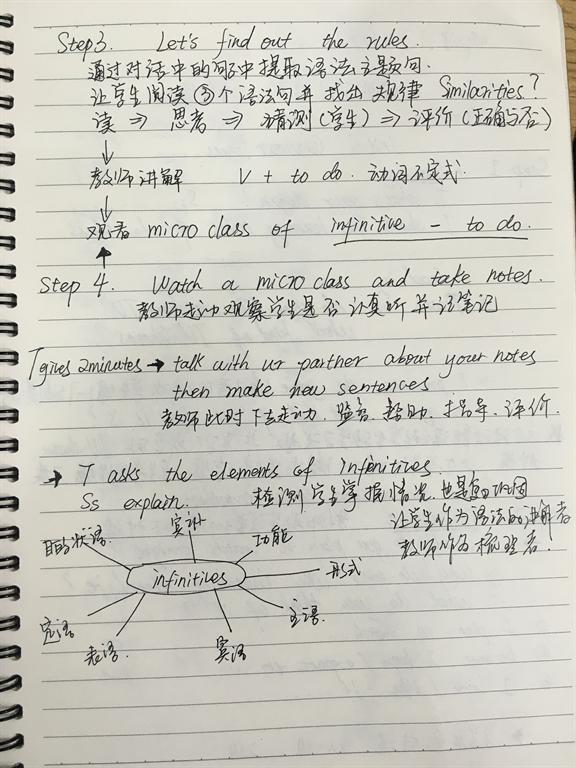 Step3. Let's find out the rules.
通过对话中的句子提取语法主题句.
让学生阅读⑤个语法句并找出规律 Similarities?
读 ⇒ 思考 ⇒ 猜测(学生) ⇒ 评价(正确与否)
↓
教师讲解 V + to do. 动词不定式.
↓
观看 micro class of infinitive - to do.
↑
Step 4. Watch a micro class and take notes.
教师走动观察学生是否认真听并记笔记
T gives 2minutes → talk with ur partner about your notes
then make new sentences
教师此时下去走动. 监督. 帮助. 指导. 评价.
→ T asks the elements of infinitives.
Ss explain. 检测学生掌握情况. 也是巩固
让学生作为语法的讲解者
教师作为梳理者.
目的状语.
宾补
功能
infinitives
形式
主语.
定语
表语.
宾语